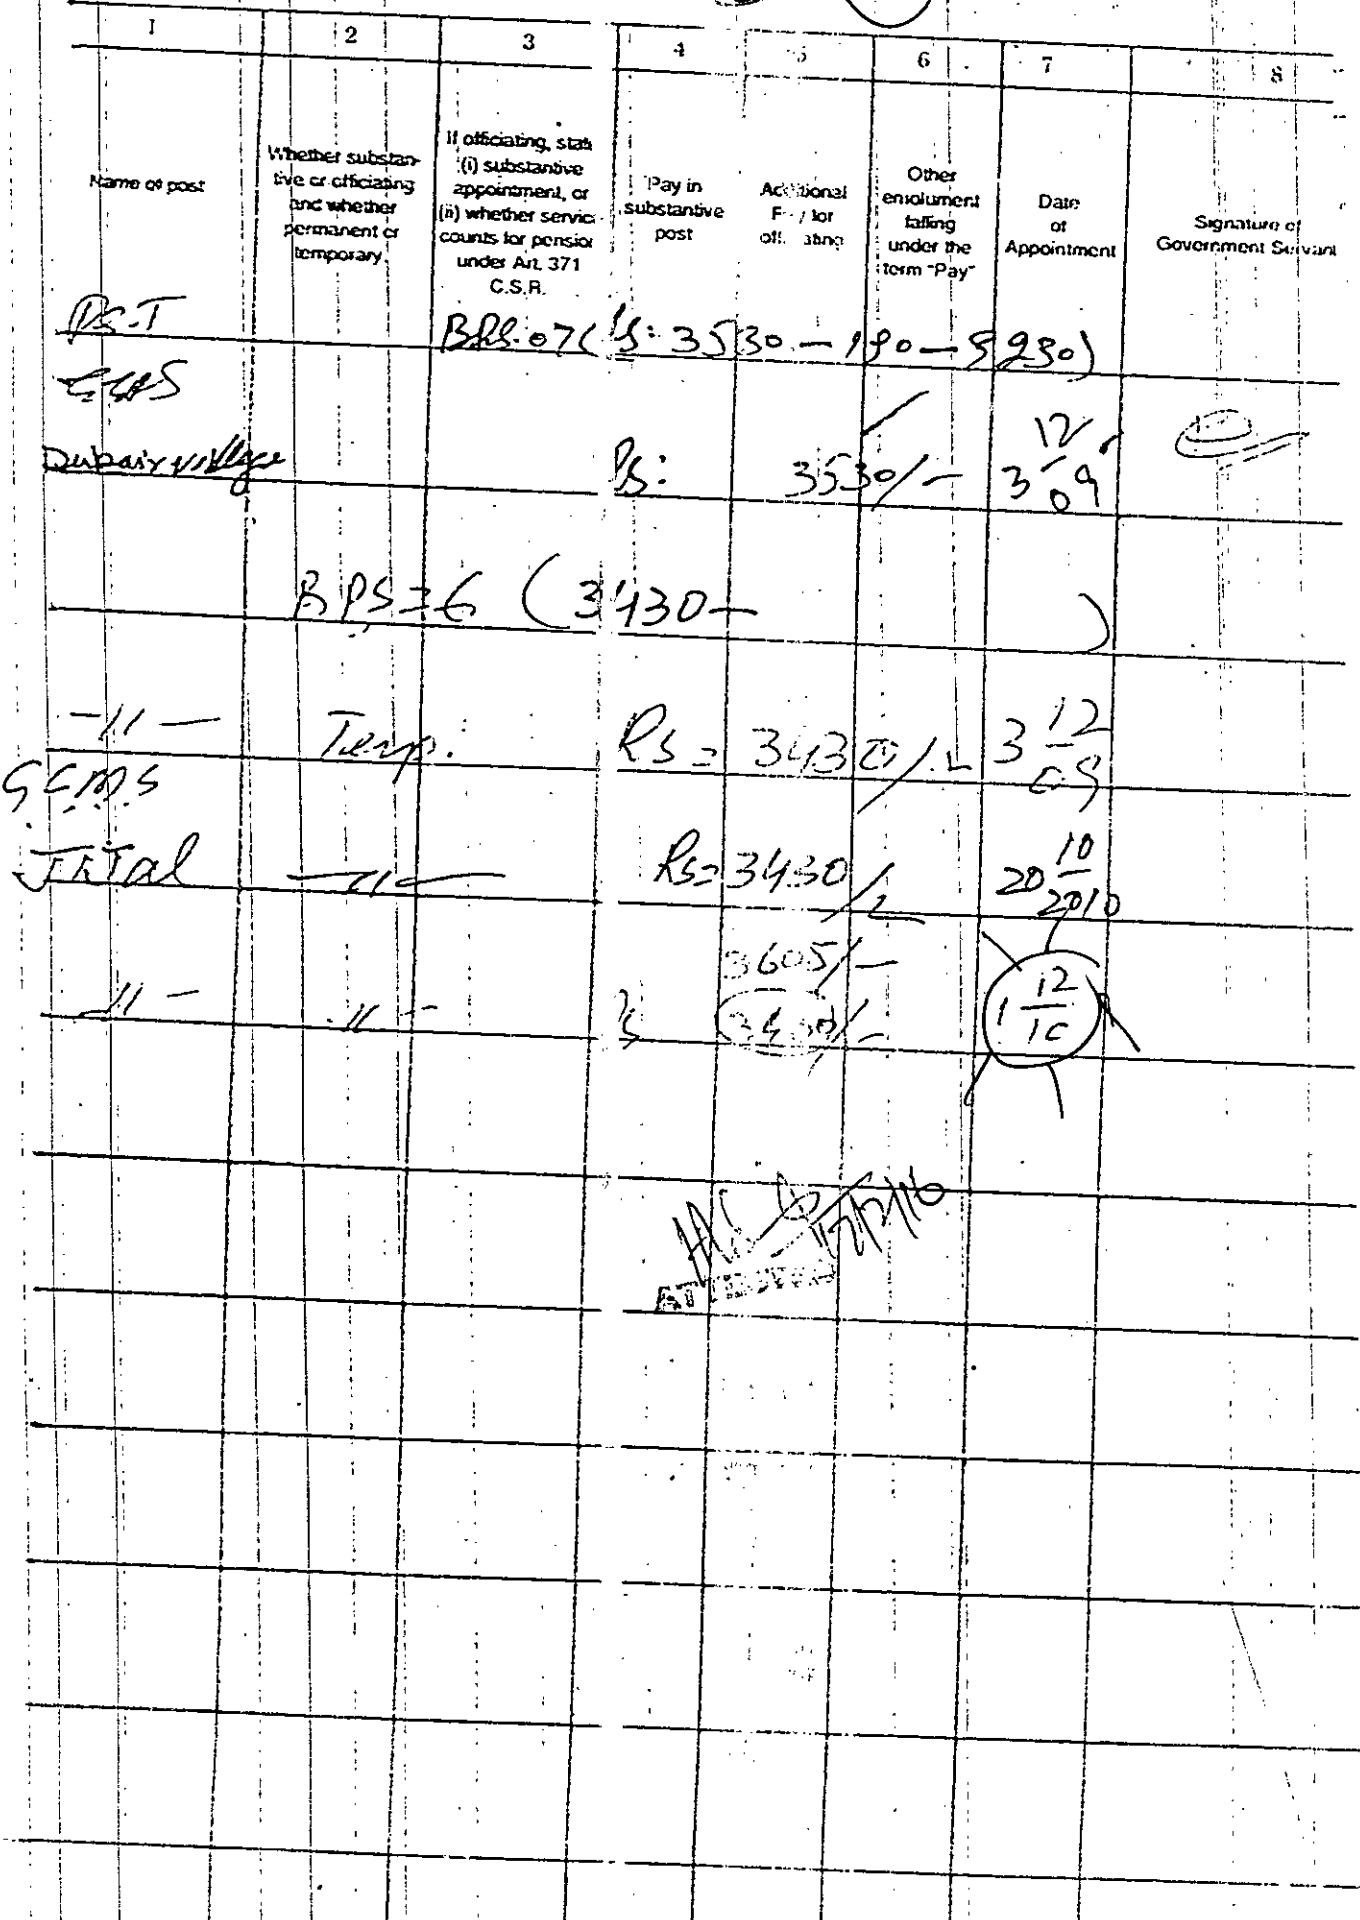 1 2 3 4 5 6 7 8
Name of post
Whether substan-
tive or officiating
and whether
permanent or
temporary
If officiating, state
(i) substantive
appointment, or
(ii) whether service
counts for pension
under Art. 371
C.S.R.
Pay in
substantive
post
Additional
for
Other
emolument
falling
under the
term "Pay"
Date
of
Appointment
Signature of
Government Servant
P.S.T BPS:07( Rs: 3530 — 190 — 9230)
Dubair village Rs: 3530/- 3 12/09
BPS=6 (3430— )
—11— Temp. Rs= 3430/- 3 12/09
GCMS
JATal —11— Rs=3430/- 20 10/2010
3605/-
—11— —11— 3430/- 1 12/10
17/2/16
ATTESTED